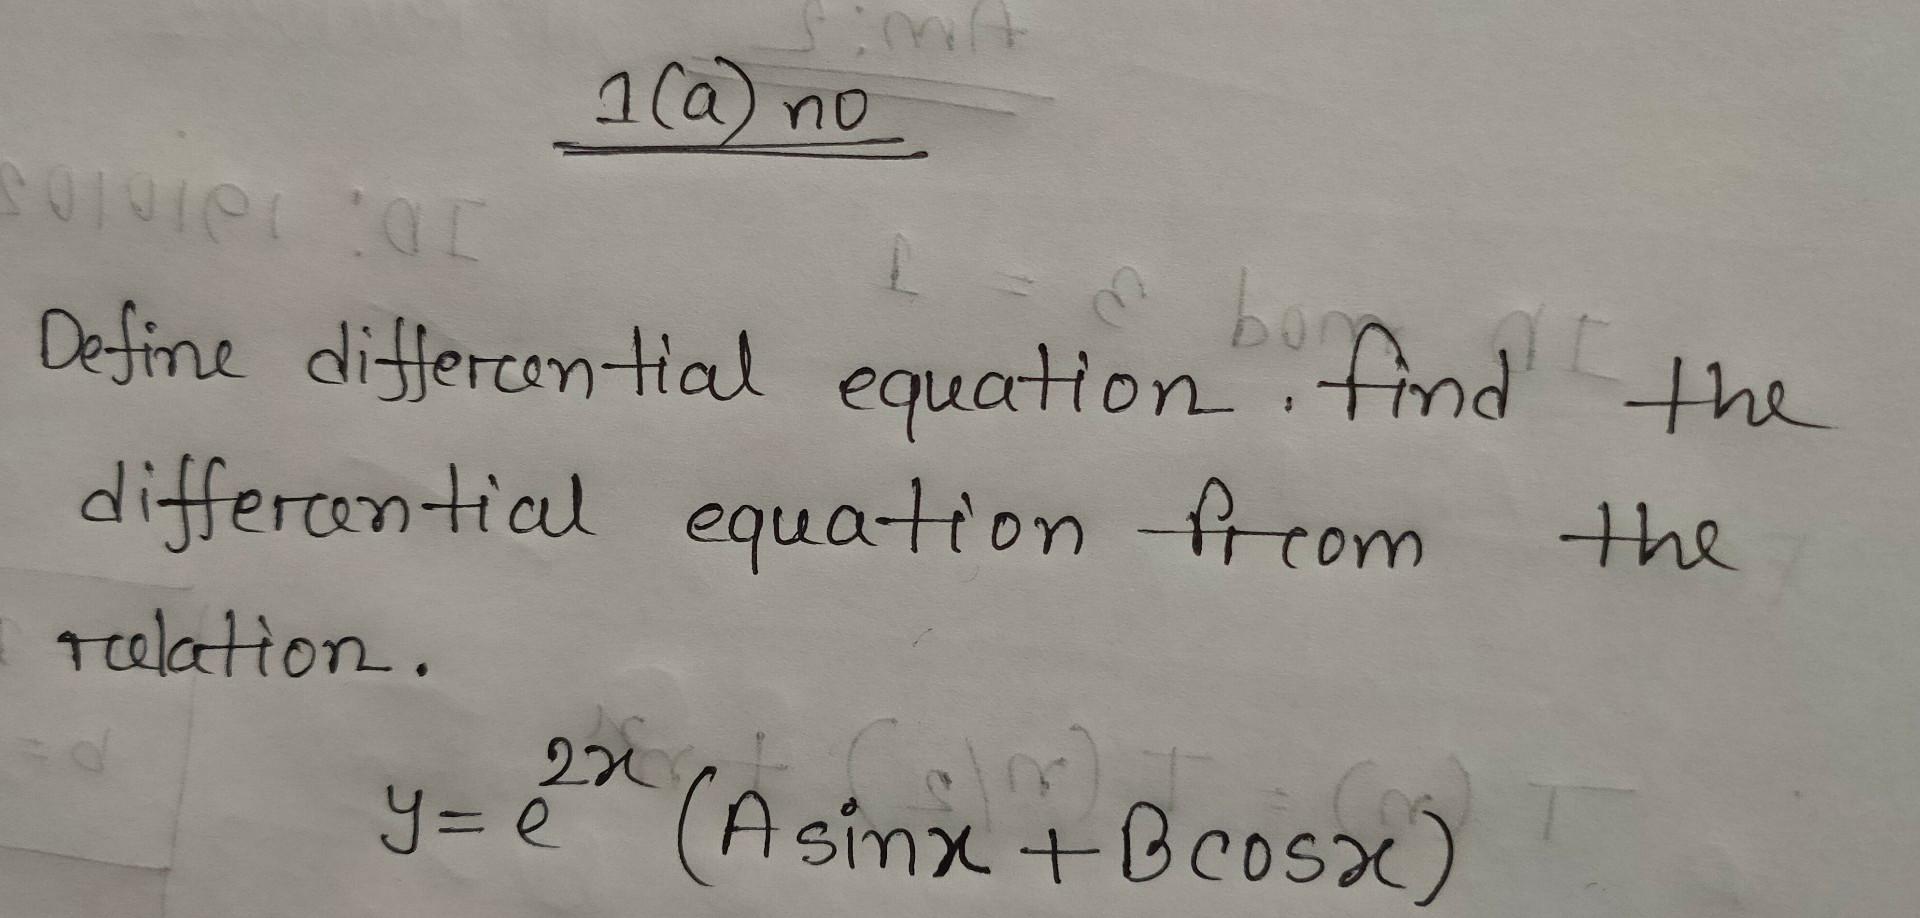 1(a) no
Define differential equation. find the
differential equation from the
relation.
y = e^{2x} (A sinx + B cosx)